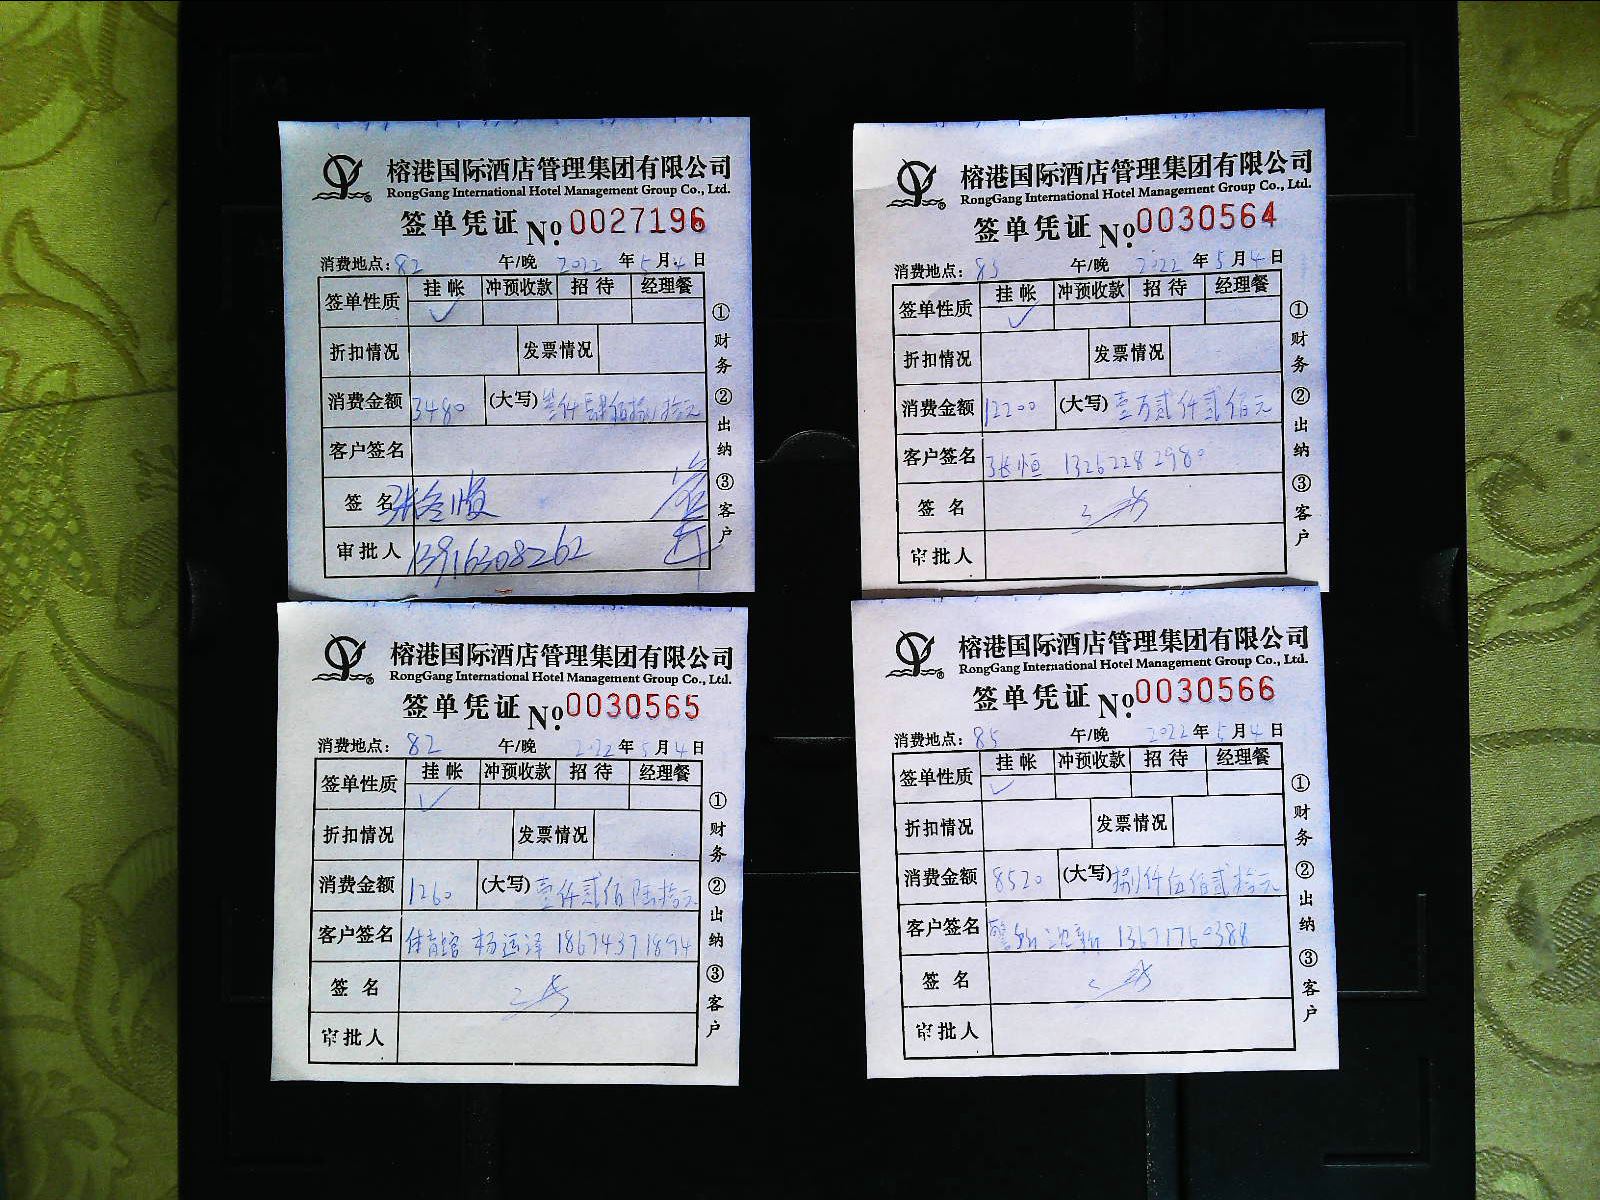 榕港国际酒店管理集团有限公司
RongGang International Hotel Management Group Co., Ltd.
签单凭证 No. 0027196
消费地点: 82 午/晚 2022 年 5 月 4 日
签单性质 挂帐 冲预收款 招待 经理餐
✓
折扣情况 发票情况
消费金额 3480 (大写) 叁仟肆佰捌拾元
客户签名
签名
审批人 13916308262
①财务 ②出纳 ③客户
榕港国际酒店管理集团有限公司
RongGang International Hotel Management Group Co., Ltd.
签单凭证 No. 0030564
消费地点: 85 午/晚 2022 年 5 月 4 日
签单性质 挂帐 冲预收款 招待 经理餐
✓
折扣情况 发票情况
消费金额 12200 (大写) 壹万贰仟贰佰元
客户签名 张恒 13262282980
签名
审批人
①财务 ②出纳 ③客户
榕港国际酒店管理集团有限公司
RongGang International Hotel Management Group Co., Ltd.
签单凭证 No. 0030565
消费地点: 82 午/晚 2022 年 5 月 4 日
签单性质 挂帐 冲预收款 招待 经理餐
✓
折扣情况 发票情况
消费金额 1260 (大写) 壹仟贰佰陆拾元
客户签名 体育馆 杨运泽 18674371894
签名
审批人
①财务 ②出纳 ③客户
榕港国际酒店管理集团有限公司
RongGang International Hotel Management Group Co., Ltd.
签单凭证 No. 0030566
消费地点: 85 午/晚 2022 年 5 月 4 日
签单性质 挂帐 冲预收款 招待 经理餐
✓
折扣情况 发票情况
消费金额 8520 (大写) 捌仟伍佰贰拾元
客户签名 13671760388
签名
审批人
①财务 ②出纳 ③客户